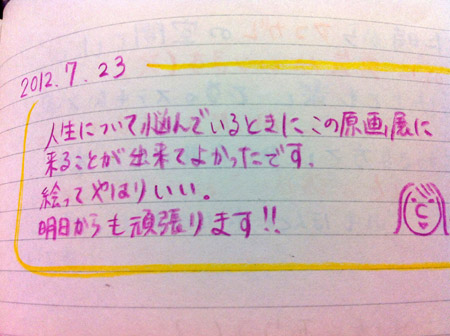 2012.7.23
人生について悩んでいるときにこの原画展に
来ることが出来てよかったです。
絵ってやはりいい。
明日からも頑張ります!!